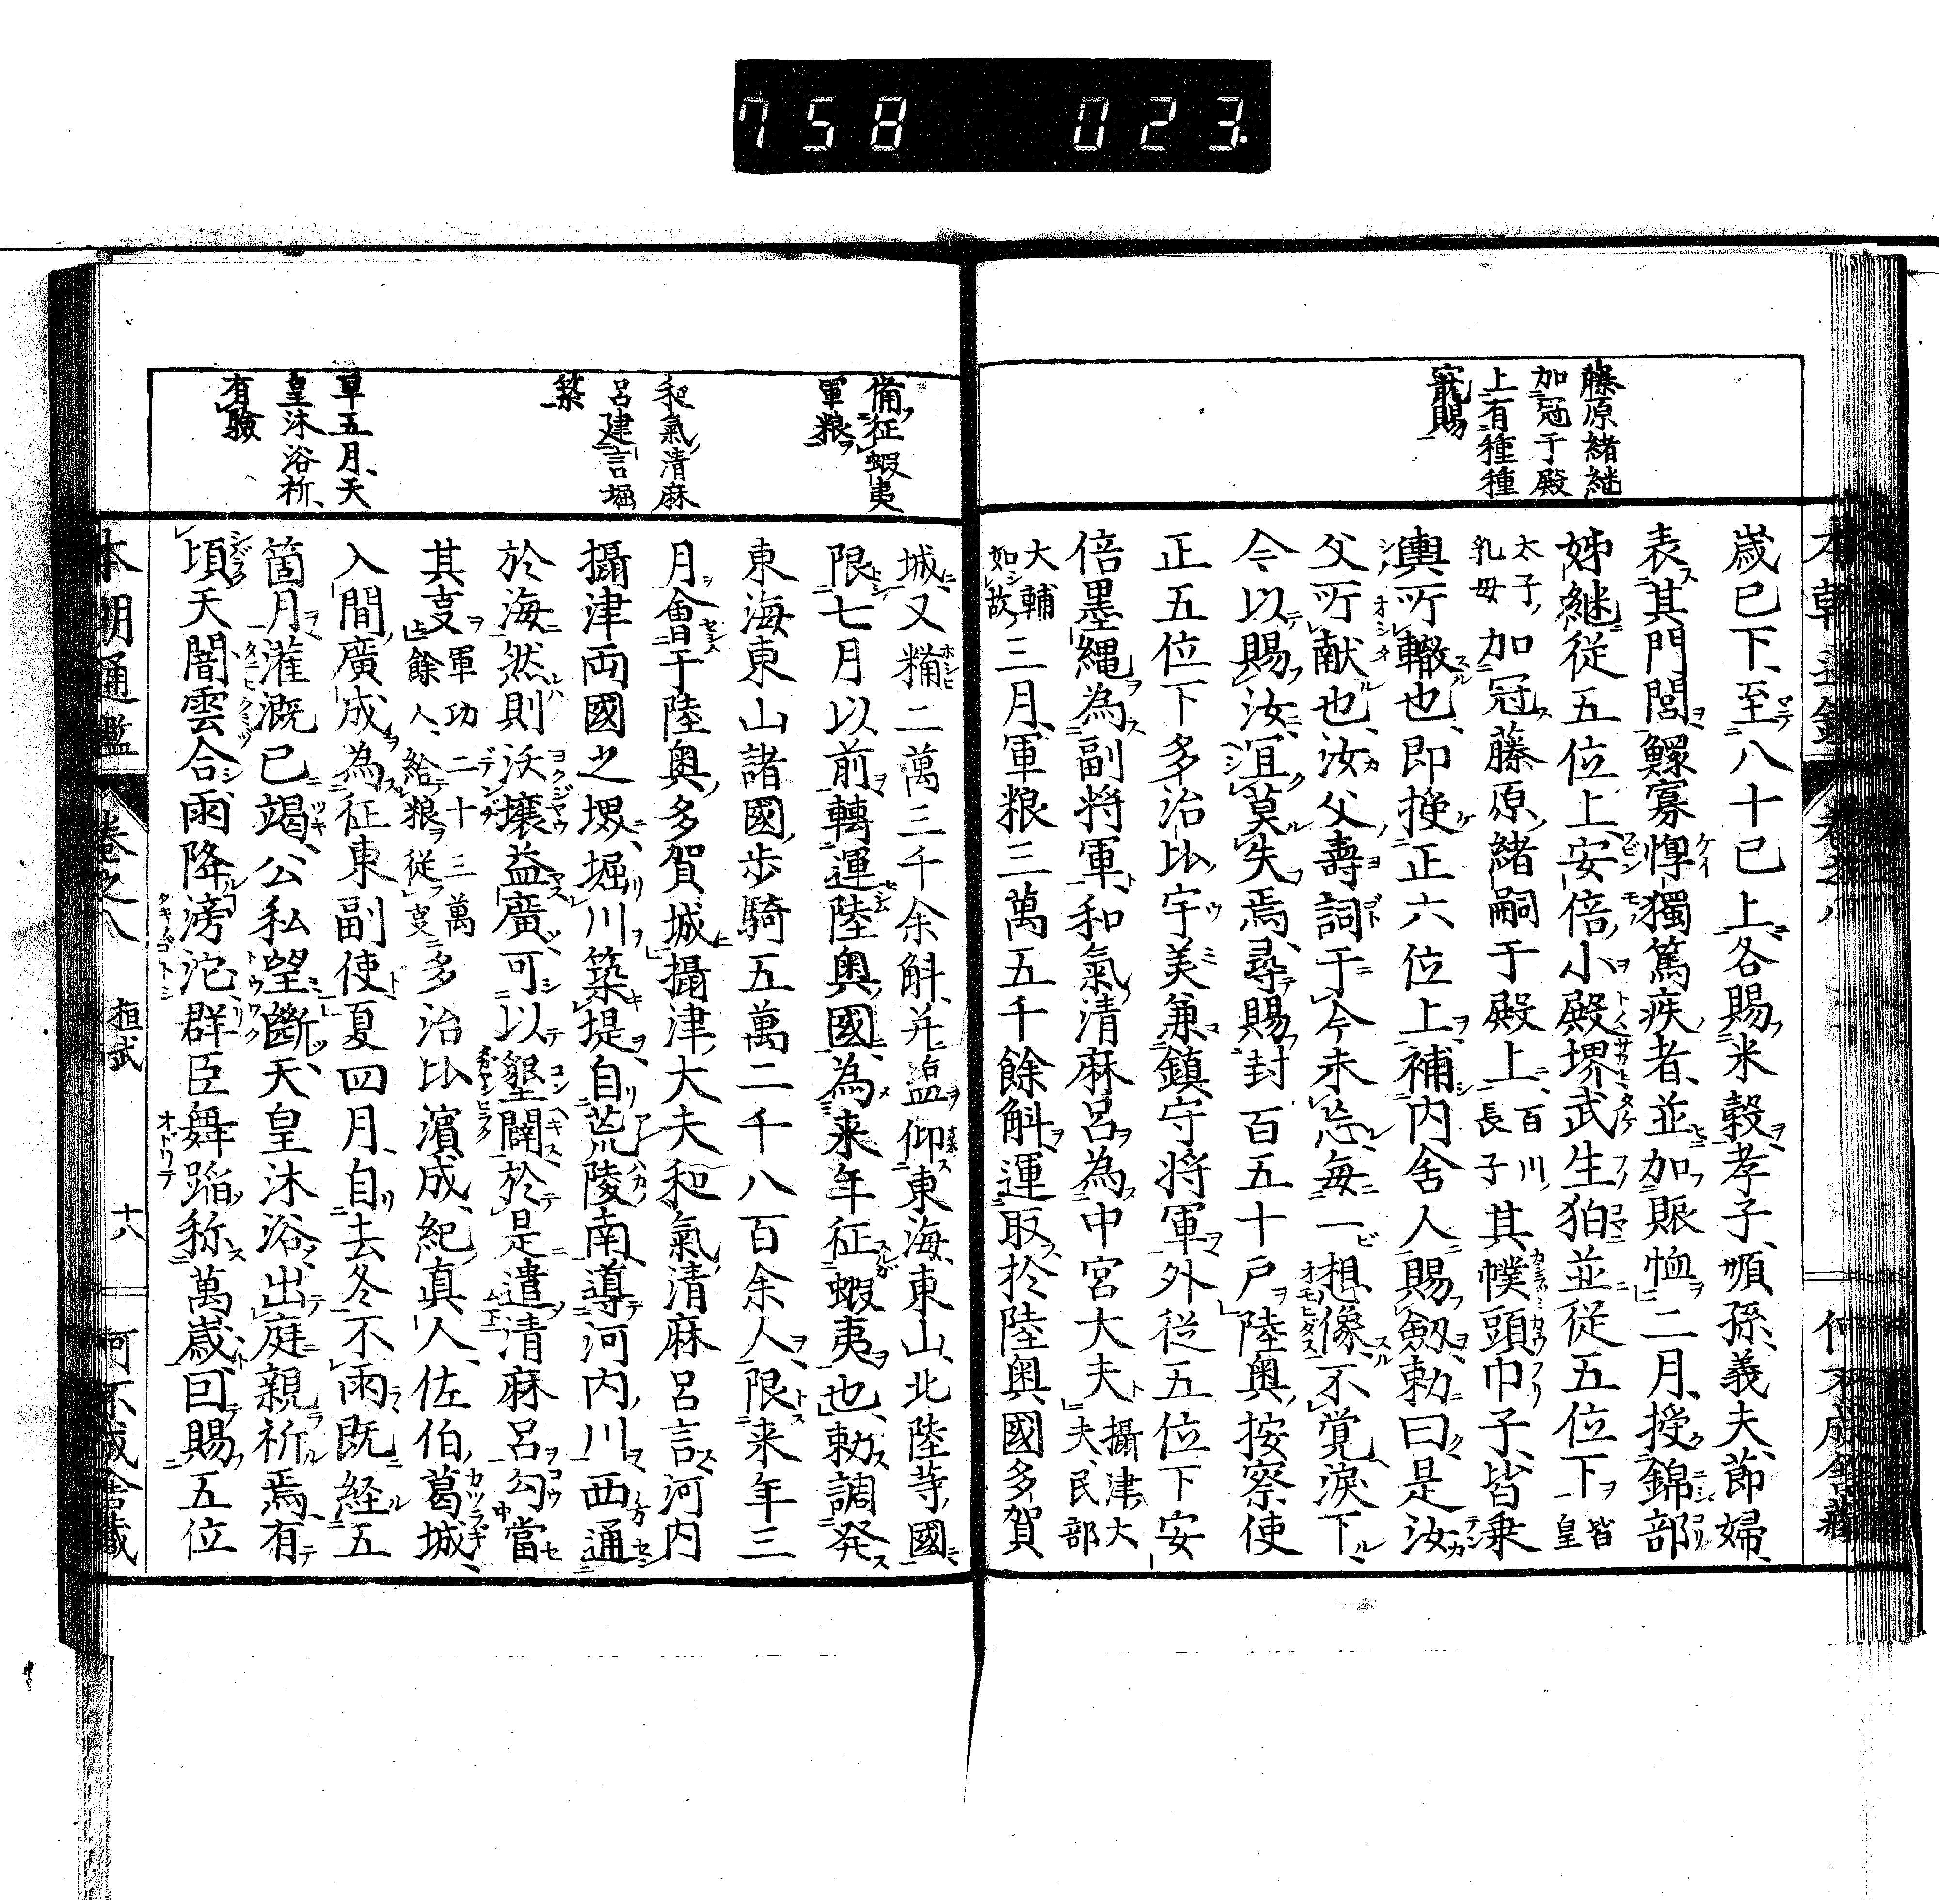 758 023.
藤原緒継
加冠于殿
上有種種
寵賜
歳已下、至八十已上、各賜米穀、孝子、順孫、義夫、節婦、
表其門閭、鰥寡惸獨篤疾者、並加賑恤、二月、授錦部
姉継従五位上、安倍小殿堺武生狛並従五位下、皆皇
太子乳母加冠藤原緒嗣于殿上、百川長子其幞頭巾子、皆乗
輿所轍也、即授正六位上、補内舍人、賜劔、勅曰、是汝
父所献也、汝父壽詞于今未忘、毎一想像、不覚涙下、
今以賜汝、宜莫失焉、尋賜封百五十戸、陸奥按察使
正五位下多治比宇美兼鎮守将軍、外従五位下安
倍墨縄為副将軍、和氣清麻呂為中宮大夫、攝津大夫、民部
大輔如故、三月、軍粮三萬五千餘斛、運取於陸奥國多賀
備征蝦夷
軍粮
和氣清麻
呂建言堀
築
旱五月、天
皇沐浴祈、
有驗
城、又糒二萬三千余斛、并塩、仰東海、東山、北陸等國、
限七月以前轉運陸奥國、為来年征蝦夷也、勅調発
東海東山諸國歩騎五萬二千八百余人、限来年三
月會于陸奥多賀城、攝津大夫和氣清麻呂言、河内
攝津両國之堺、堀川築堤、自荒陵南、導河内川、西通
於海、然則沃壌益廣、可以墾闢、於是遣清麻呂勾當
其支、軍功二十三萬餘人、給粮従支、多治比濱成、紀真人、佐伯葛城、
入間廣成為征東副使、夏四月、自去冬不雨、既経五
箇月、灌漑已竭、公私望斷、天皇沐浴、出庭親祈焉、有
頃天闇雲合、雨降滂沱、群臣舞蹈、称萬歳、因賜五位
本朝通鑑 卷之八 桓武 十八